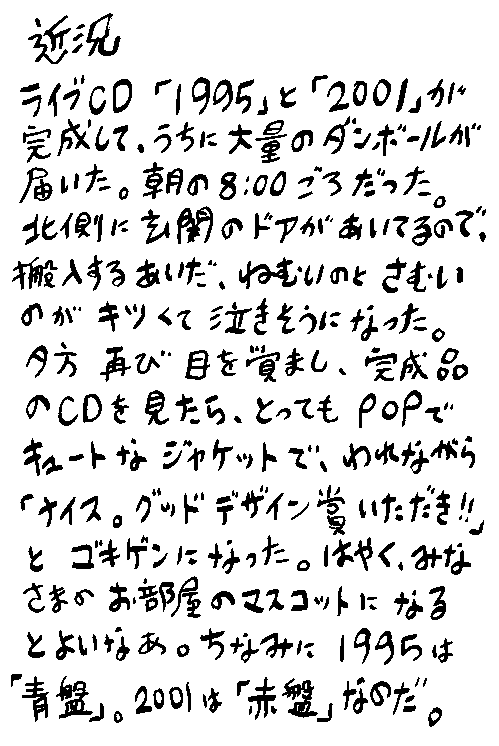 近況
ライブCD「1995」と「2001」が
完成して、うちに大量のダンボールが
届いた。朝の8:00ごろだった。
北側に玄関のドアがあいてるので、
搬入するあいだ、ねむいのとさむい
のがキツくて泣きそうになった。
夕方再び目を覚まし、完成品
のCDを見たら、とってもPOPで
キュートなジャケットで、われながら
「ナイス。グッドデザイン賞いただき!!」
とゴキゲンになった。はやく、みな
さまのお部屋のマスコットになる
とよいなあ。ちなみに1995は
「青盤」。2001は「赤盤」なのだ。